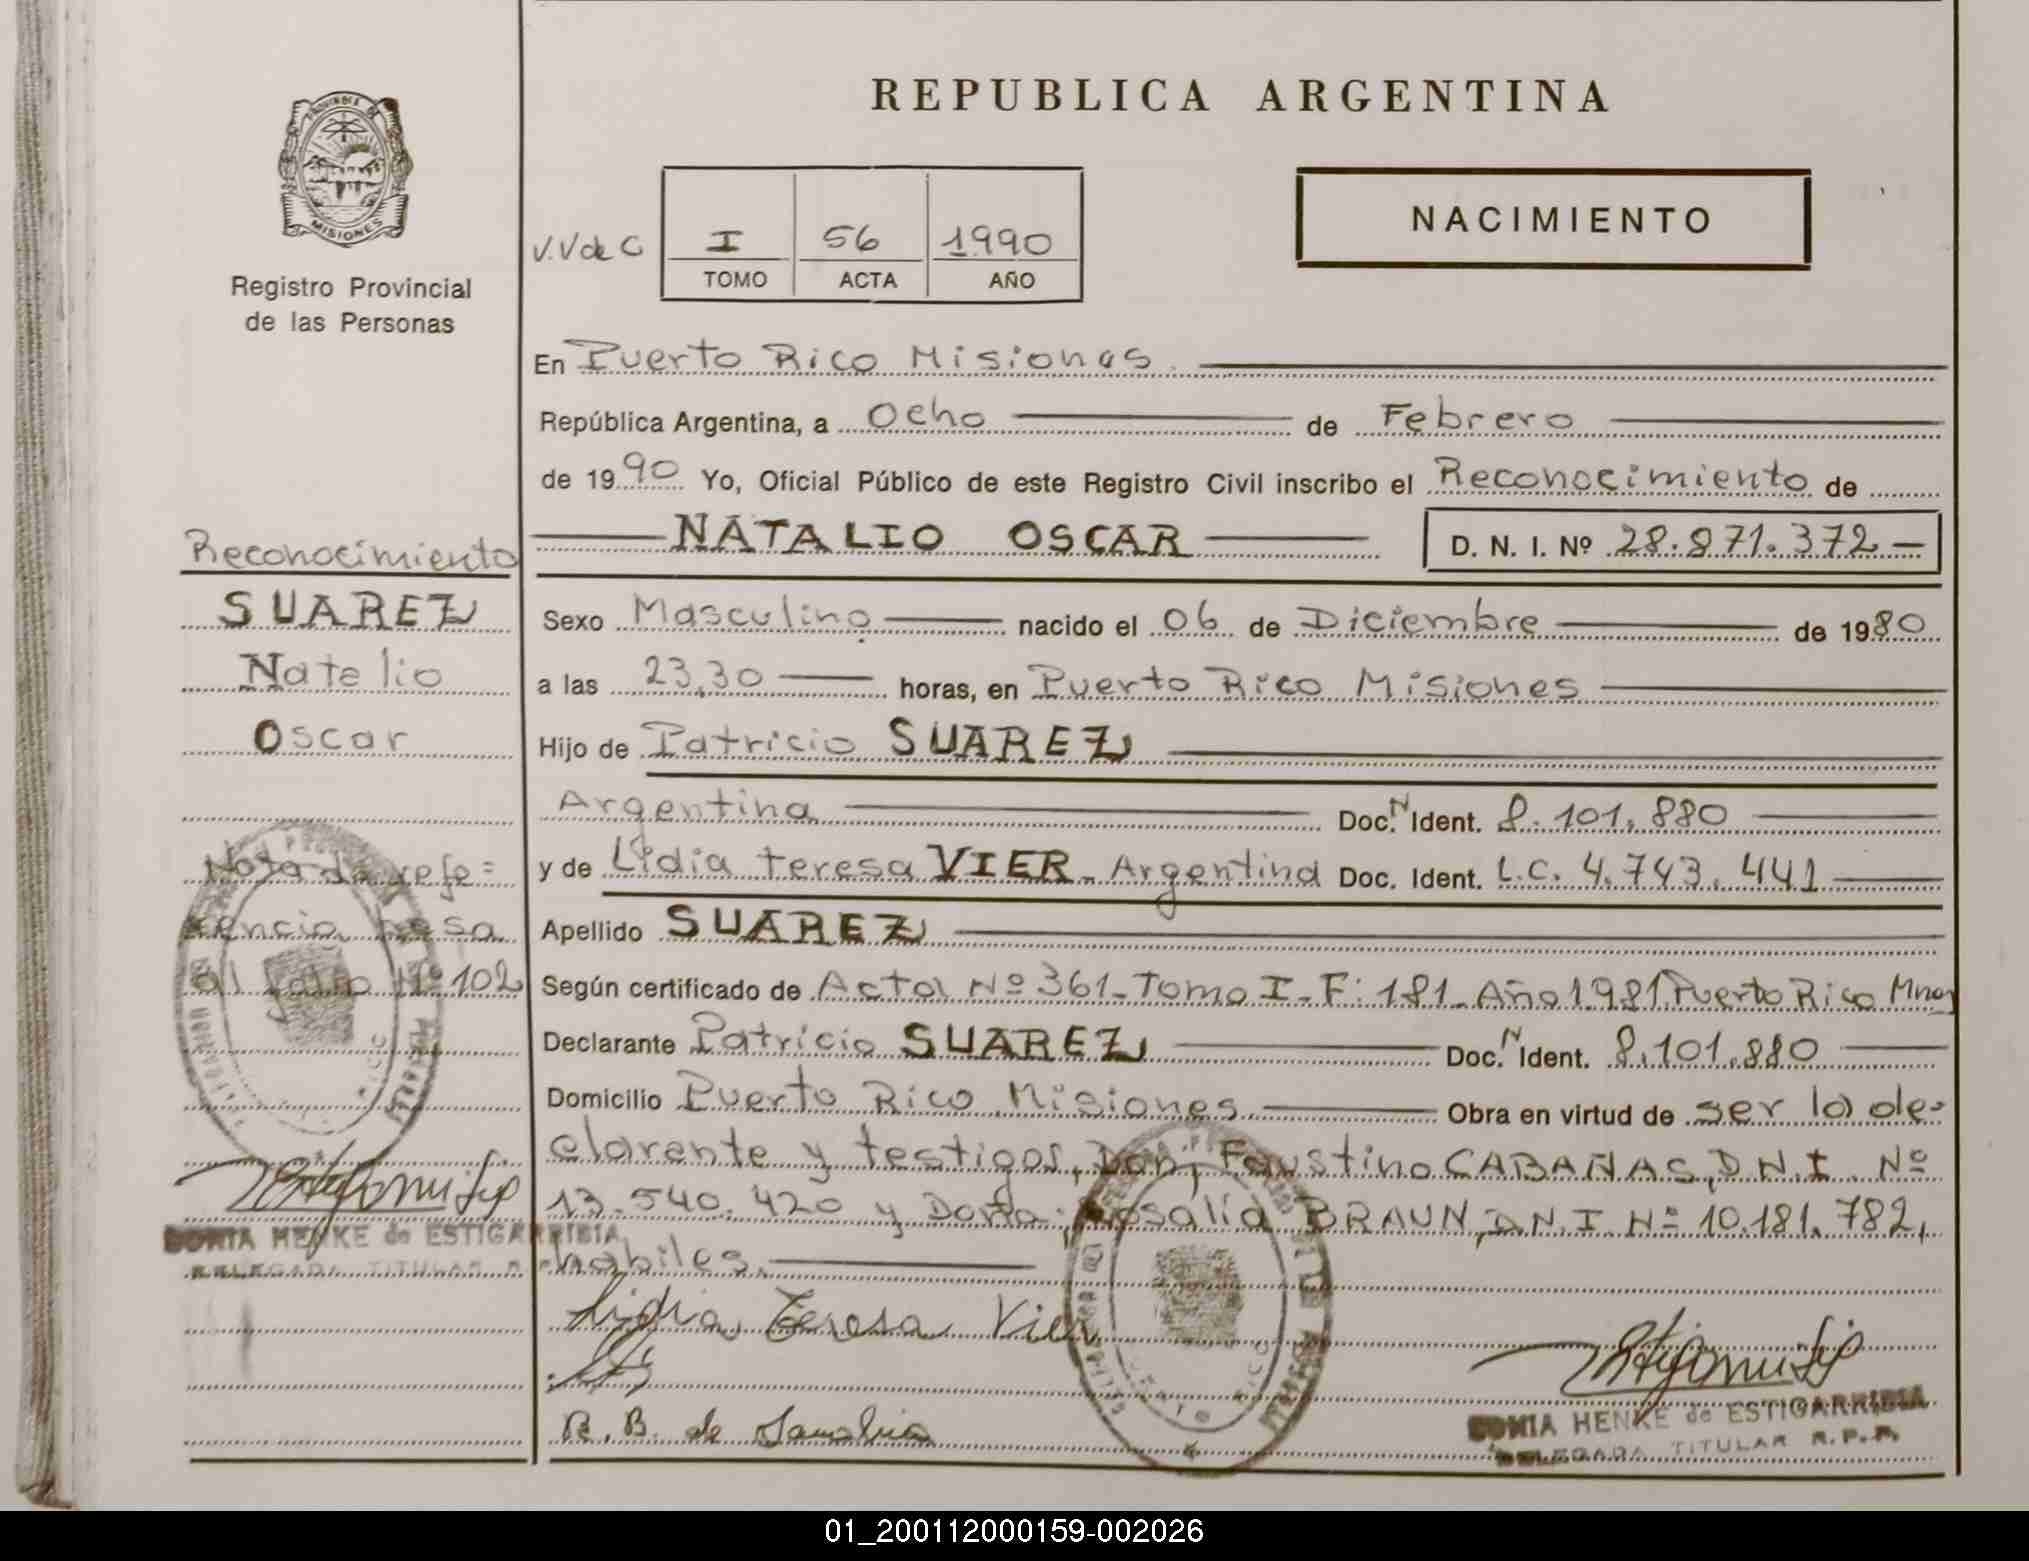 REPUBLICA ARGENTINA
PROVINCIA DE
MISIONES
Registro Provincial
de las Personas
V.V de C
I 56 1990
TOMO ACTA AÑO
NACIMIENTO
En Puerto Rico Misiones
República Argentina, a Ocho de Febrero
de 1990 Yo, Oficial Público de este Registro Civil inscribo el Reconocimiento de
NATALIO OSCAR D. N. I. Nº 28.871.372.-
Reconocimiento
SUAREZ
Natalio
Oscar
Nota de refe=
rencia pasa
al folio Nº 102
SONIA HENKE de ESTIGARRIBIA
DELEGADA TITULAR R.P.P.
Sexo Masculino nacido el 06 de Diciembre de 1980
a las 23,30 horas, en Puerto Rico Misiones
Hijo de Patricio SUAREZ
Argentina Doc. N Ident. 8.101.880
y de Lidia teresa VIER - Argentina Doc. Ident. L.C. 4.743.441
Apellido SUAREZ
Según certificado de Acta Nº 361 - Tomo I - F: 181 - Año 1981 Puerto Rico Mnes
Declarante Patricio SUAREZ Doc. N Ident. 8.101.880
Domicilio Puerto Rico Misiones Obra en virtud de ser la de-
clarente y testigos, Don; Faustino CABAÑAS, D.N.I. Nº
13.540.420 y Doña: Rosalia BRAUN, D.N.I. Nº 10.181.782,
habiles.
Lidia Teresa Vier
R. B. de
SONIA HENKE de ESTIGARRIBIA
DELEGADA TITULAR R.P.P.
01_200112000159-002026